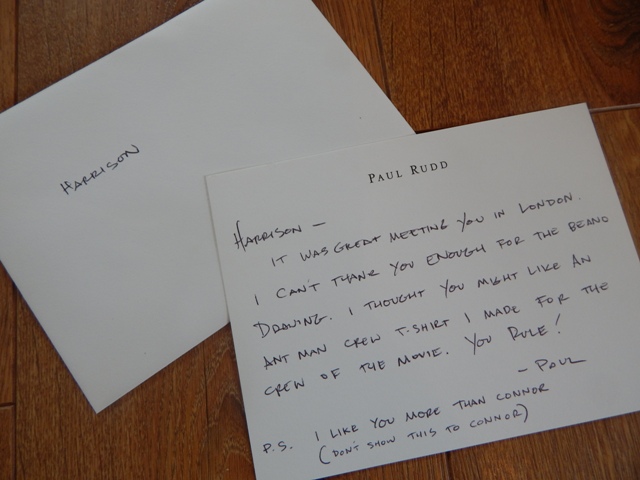 HARRISON
PAUL RUDD
HARRISON —
IT WAS GREAT MEETING YOU IN LONDON.
I CAN'T THANK YOU ENOUGH FOR THE BEANO
DRAWING. I THOUGHT YOU MIGHT LIKE AN
ANT MAN CREW T-SHIRT I MADE FOR THE
CREW OF THE MOVIE. YOU RULE!
— PAUL
P.S. I LIKE YOU MORE THAN CONNOR
(DON'T SHOW THIS TO CONNOR)